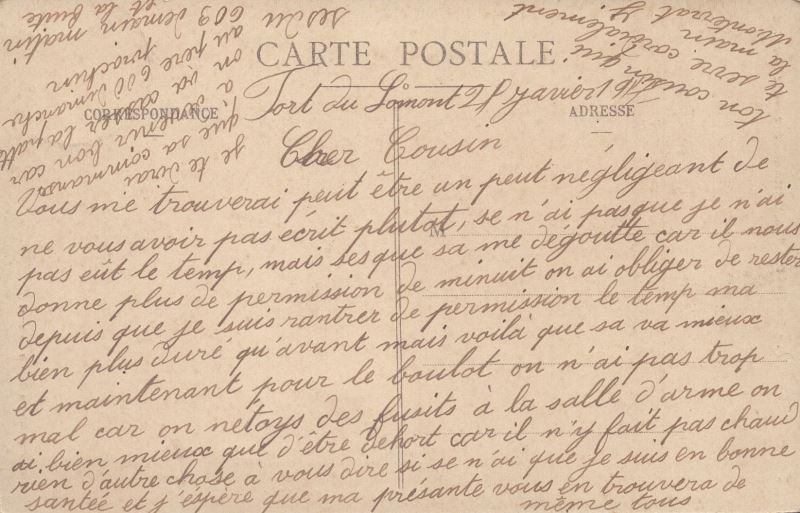 CARTE POSTALE
CORRESPONDANCE
ADRESSE
M
Fort du Lomont 21 Janvier
Cher Cousin
Vous me trouverai peut être un peut négligeant de
ne vous avoir pas écrit plutot, se n'ai pas que je n'ai
pas eût le temp, mais ses que sa me dégoutte car il nous
donne plus de permission de minuit on ai obliger de rester
depuis que je suis rantrer de permission le temp ma
bien plus duré qu'avant mais voilà que sa va mieux
et maintenant pour le boulot on n'ai pas trop
mal car on nétoys des fusits à la salle d'arme on
ai bien mieux que d'être dehort car il n'y fait pas chaud
rien d'autre chose à vous dire si se n'ai que je suis en bonne
santée et j'espère que ma présante vous en trouvera de
même tous
je te dirai
que sa commansa
à devenir bon car
on va casser la patte
au père 600 dimanche
prochin
609 demain matin
et la suite
ses du
ton cousin qui
te serre cordialement
la main
Monterrat y